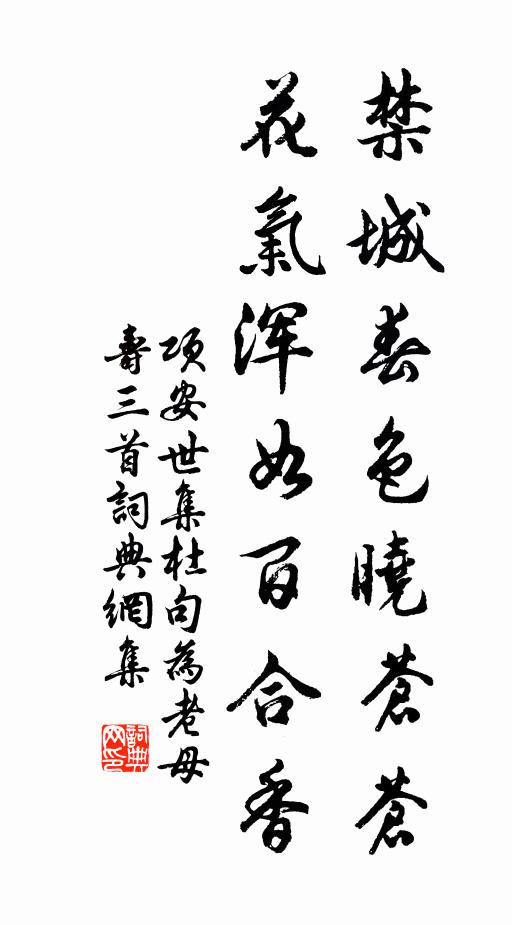 禁城春色曉蒼蒼
花氣渾如百合香
項安世集杜句為老母
壽三首詞典網集
詞典
网印